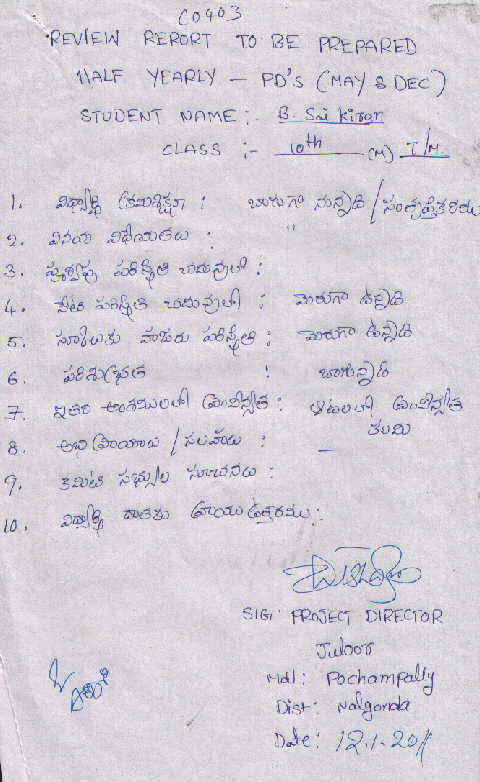 C0903
REVIEW REPORT TO BE PREPARED
HALF YEARLY - PD'S (MAY & DEC)
STUDENT NAME :- B. Sai Kiran
CLASS :- 10th (M) T/M
1. విద్యార్థి క్రమశిక్షణ : బాగుగా నున్నది / సంతృప్తికరము
2. వినయ విధేయతలు : "
3. పూర్వపు పరిస్థితి చదువులో :
4. నేటి పరిస్థితి చదువులో : మెరుగా ఉన్నది
5. స్కూలుకు హాజరు పరిస్థితి : మెరుగా ఉన్నది
6. పరిశుభ్రత : బాగున్నది
7. ఇతర అంశములలో ప్రావీణ్యత : ఆటలలో ప్రావీణ్యత
కలమి
8. అభిప్రాయాలు / సలహాలు : -
9. కమిటి సభ్యుల సూచనలు :
10. విద్యార్థి దాతకు వ్రాయు ఉత్తరము :
SIG: PROJECT DIRECTOR
Juloor
Mdl: Pochampally
Dist: Nalgonda
Date: 12.1.2011